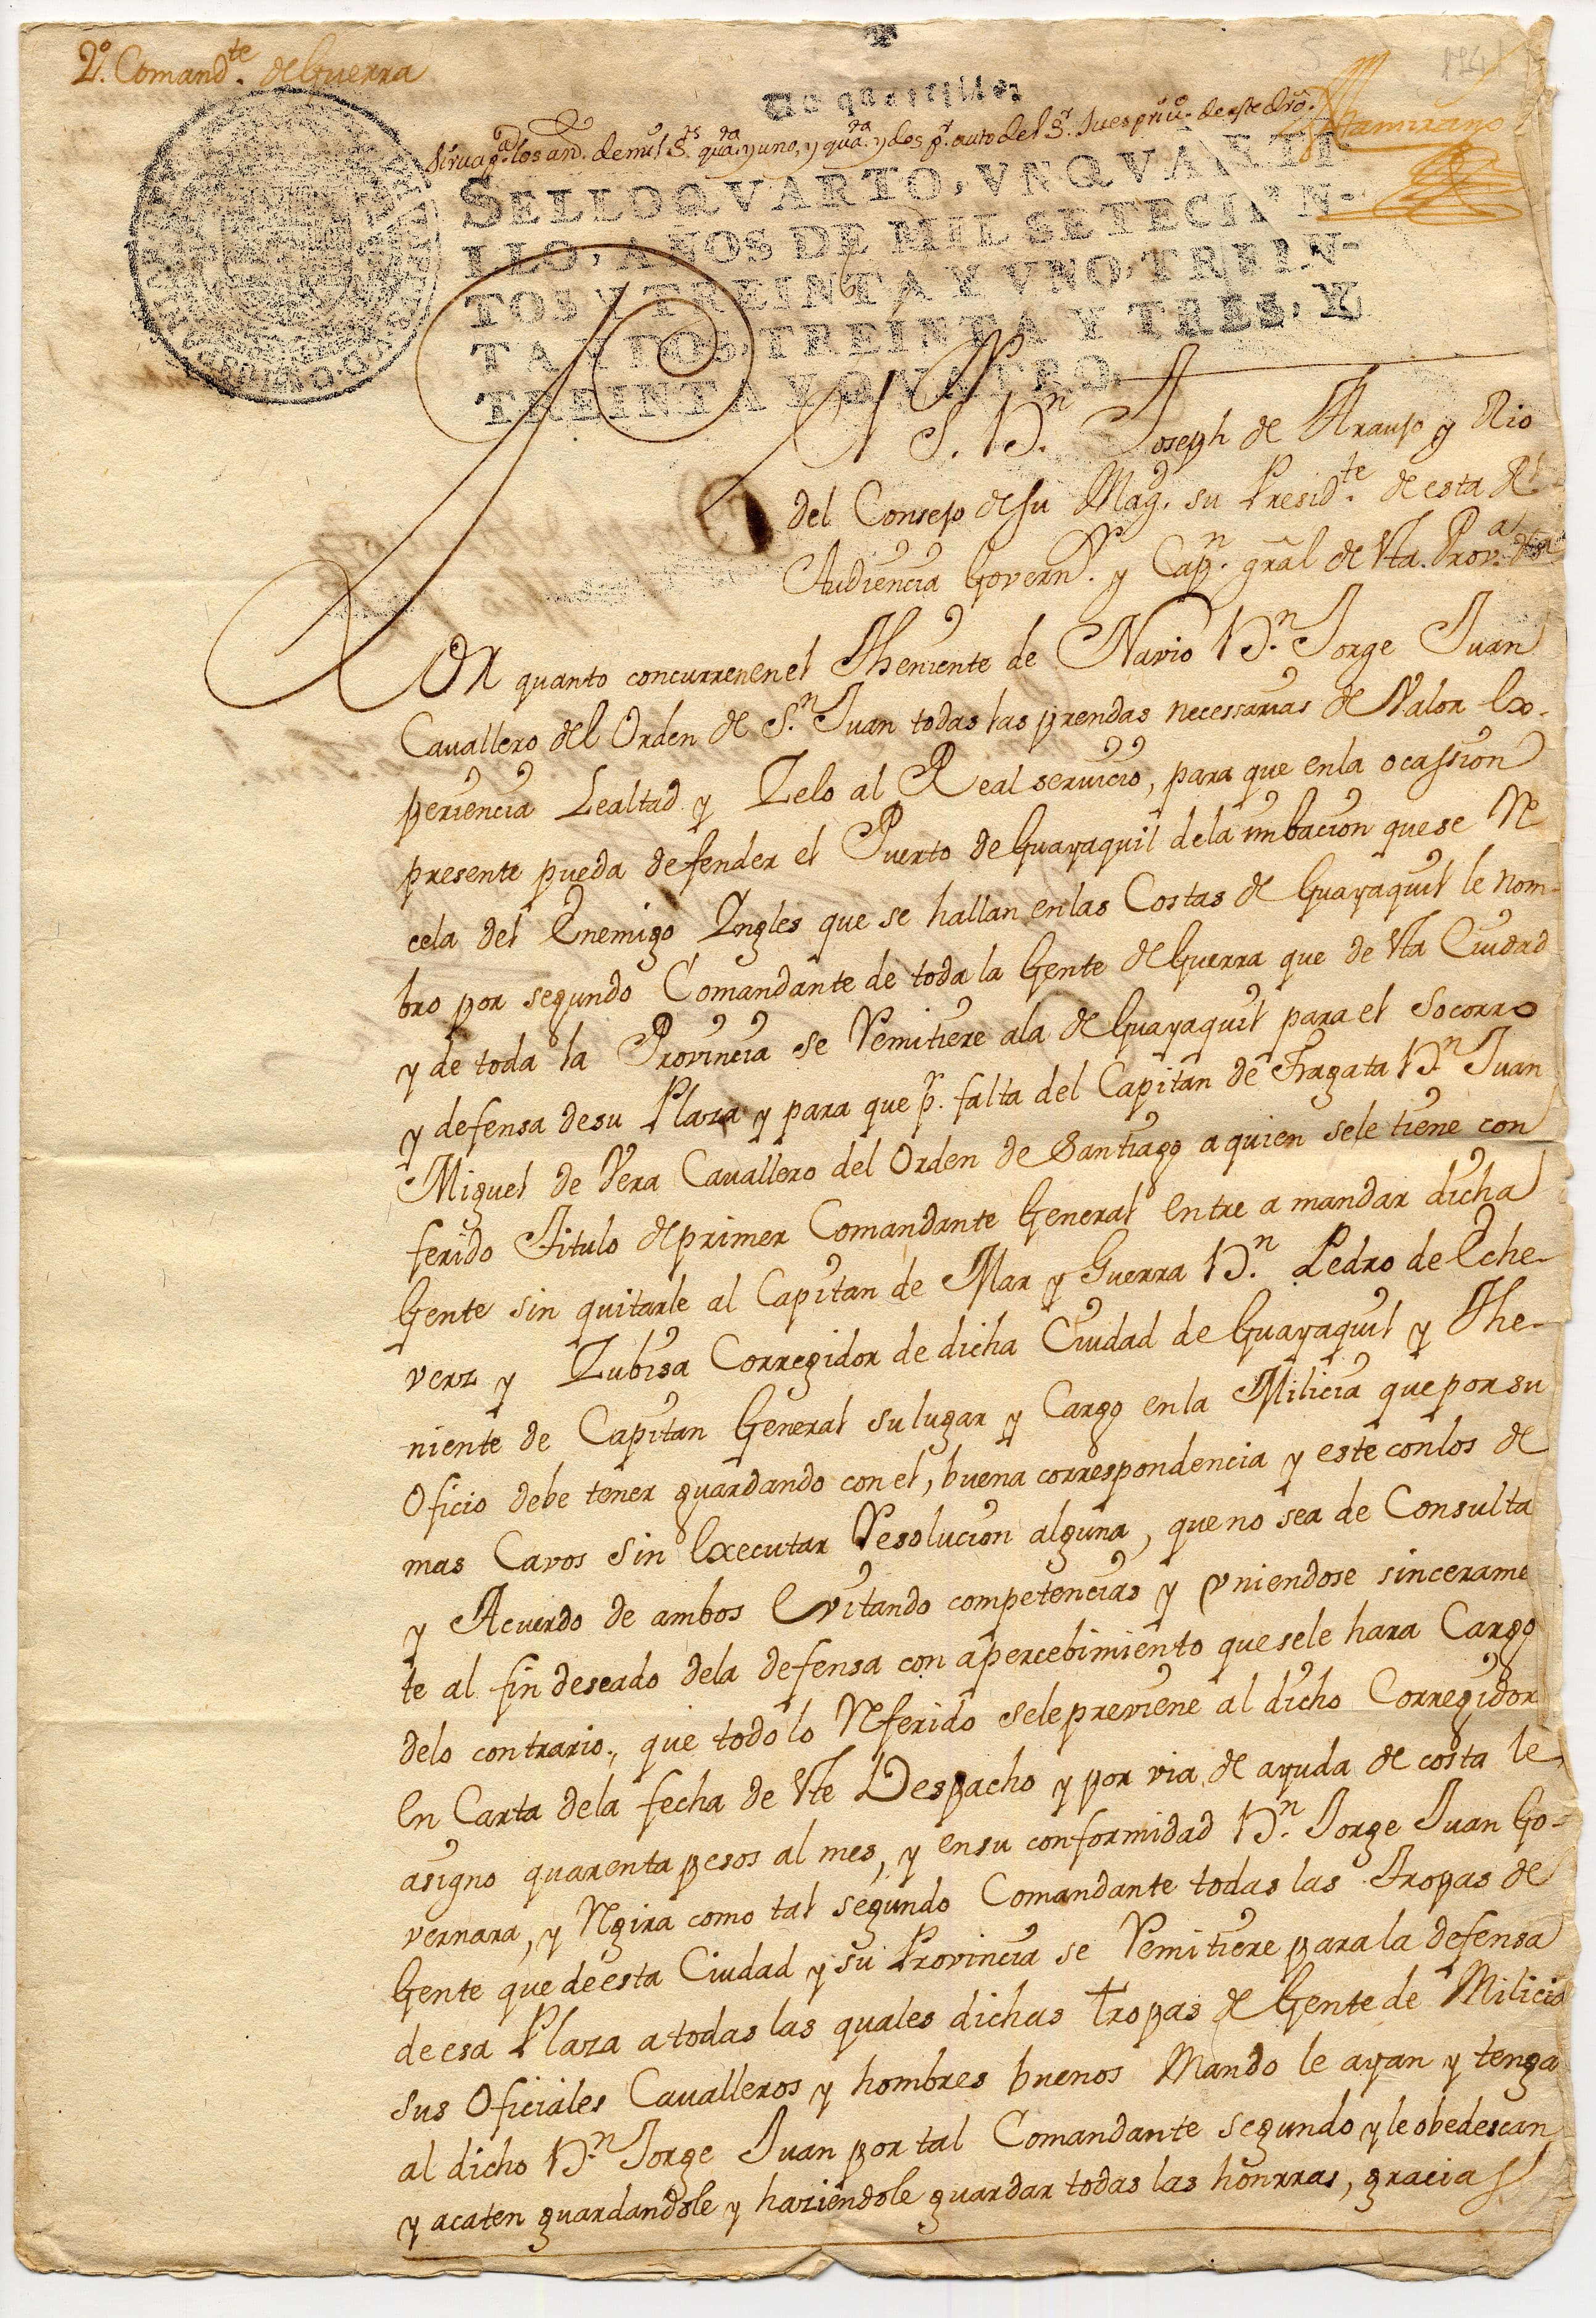 2º. Comandte. de Guerra
1741
Un quartillo
Sirva pa. los ans. de mil S.ts qta. y uno, y qta. y dos pr. auto del Sr. Jues priv. de este dro. Altamirano
SELLO QVARTO, VN QVARTI
LLO, AÑOS DE MIL SETECIEN-
TOS Y TREINTA Y VNO, TREIN-
TA Y DOS, TREINTA Y TRES, Y
TREINTA Y QVATRO.
S. Dn. Joseph de Araujo y Rio
del Consejo de su Mag. su Presidte. de esta Rl
Audiencia Governr. y Capn. gral de Vta. Prova.
Por quanto concurren en el Theniente de Navio Dn. Jorge Juan
Cavallero del Orden de Sn. Juan todas las prendas necessarias de Valor Ex-
periencia Lealtad y Zelo al Real servicio, para que en la ocassion
presente pueda defender el Puerto de Guayaquil de la imbacion que se Re
cela del Enemigo Ingles que se hallan en las Costas de Guayaquil le nom-
bro por segundo Comandante de toda la Gente de Guerra que de Vta Ciudad
y de toda la Provincia se Remitiere a la de Guayaquil para el Socorro
y defensa de su Plaza y para que pr. falta del Capitan de Fragata Dn. Juan
Miguel de Vera Cavallero del Orden de Santiago a quien se le tiene con
ferido Titulo de primer Comandante General entre a mandar dicha
Gente sin quitarle al Capitan de Mar y Guerra Dn. Pedro de Eche-
verz y Zubisa Corregidor de dicha Ciudad de Guayaquil y The-
niente de Capitan General su lugar y Cargo en la Milicia que por su
Oficio debe tener guardando con el, buena correspondencia y este con los de
mas Cavos sin Executar Resolucion alguna, que no sea de Consulta
y Acuerdo de ambos Evitando competencias y vniendose sincerame
te al fin deseado de la defensa con apercebimiento que se le hara Cargo
de lo contrario, que todo lo Referido se le previene al dicho Corregidor
En Carta de la fecha de Vte Despacho y por via de ayuda de costa le
asigno quarenta pesos al mes, y en su conformidad Dn. Jorge Juan Go-
vernara, y Regira como tal segundo Comandante todas las Tropas de
Gente que de esta Ciudad y su Provincia se Remitiere para la defensa
de esa Plaza a todas las quales dichas tropas de Gente de Milicia
sus Oficiales Cavalleros y hombres buenos Mando le ayan y tenga
al dicho Dn. Jorge Juan por tal Comandante segundo y le obedescan
y acaten guardandole y haziendole guardar todas las honrras, gracias